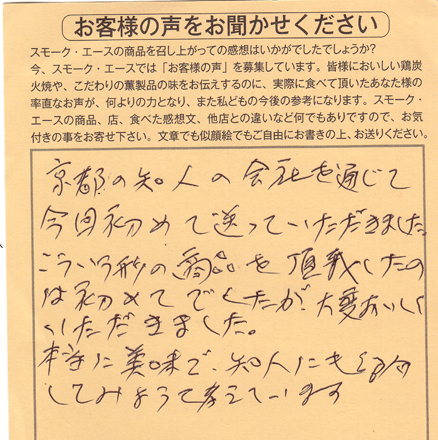 お客様の声をお聞かせください
スモーク・エースの商品を召し上がっての感想はいかがでしたでしょうか?
今、スモーク・エースでは「お客様の声」を募集しています。皆様においしい鶏炭
火焼や、こだわりの薫製品の味をお伝えするのに、実際に食べて頂いたあなた様の
率直なお声が、何よりの力となり、また私どもの今後の参考になります。スモーク・
エースの商品、店、食べた感想文、他店との違いなど何でもありですので、お気
付きの事をお寄せ下さい。文章でも似顔絵でもご自由にお書きの上、お送りください。
京都の知人の会社を通じて
今回初めて送っていただきました。
こういう形の商品を頂戴したの
は初めてでしたが、大変おいしく
いただきました。
本当に美味で、知人にも
してみようと考えています